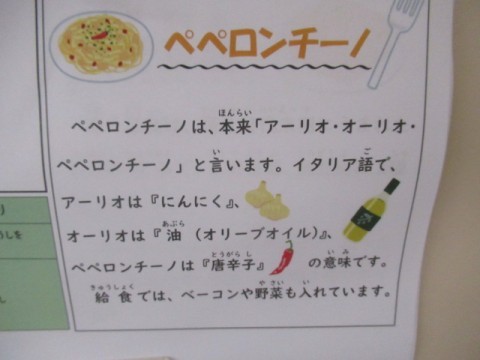 ペペロンチーノ
ペペロンチーノは、本来「アーリオ・オーリオ・
ペペロンチーノ」と言います。イタリア語で、
アーリオは『にんにく』、
オーリオは『油（オリーブオイル）』、
ペペロンチーノは『唐辛子』の意味です。
給食では、ベーコンや野菜も入れています。